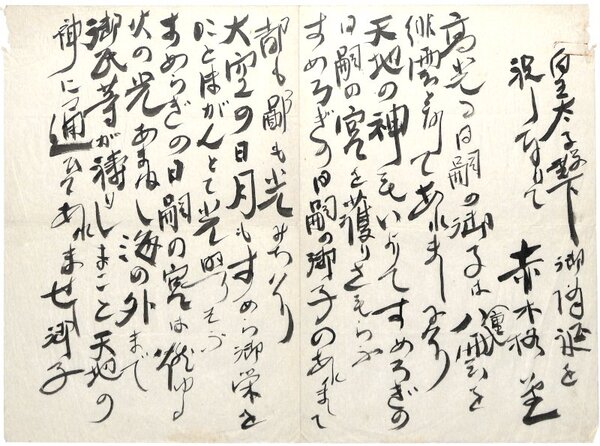 皇太子殿下御降誕を
祝しまつりて
赤木格堂
高光る日嗣の御子は八雲を
排雲別てあれましにけり
天地の神もいよりてすめろぎの
日嗣の宮を護りさもらふ
すめろぎの日嗣の御子のあれまして
都も鄙も光みちけり
大空の日月もすめら御栄を
ことほがんとて光明りそふ
すめらぎの日嗣の宮は燃ゆる
火の光あまねし海の外まで
御民等が禱りしまこと天地の
神に通ひてあれませ御子